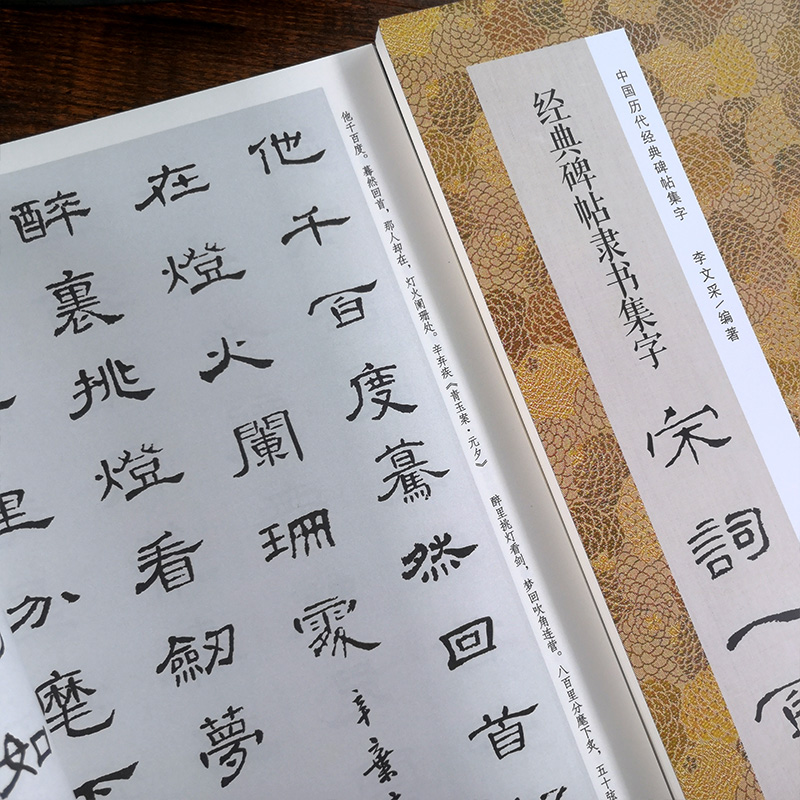 中国历代经典碑帖集字 李文采/编著
经典碑帖隶书集字
宋詞一
他千百度。蓦然回首，那人却在，灯火阑珊处。辛弃疾《青玉案·元夕》 醉里挑灯看剑，梦回吹角连营。八百里分麾下炙，五十
他千百度驀然回首
在燈火闌珊處 辛棄
醉裏挑燈看劍夢
里分麾下
如